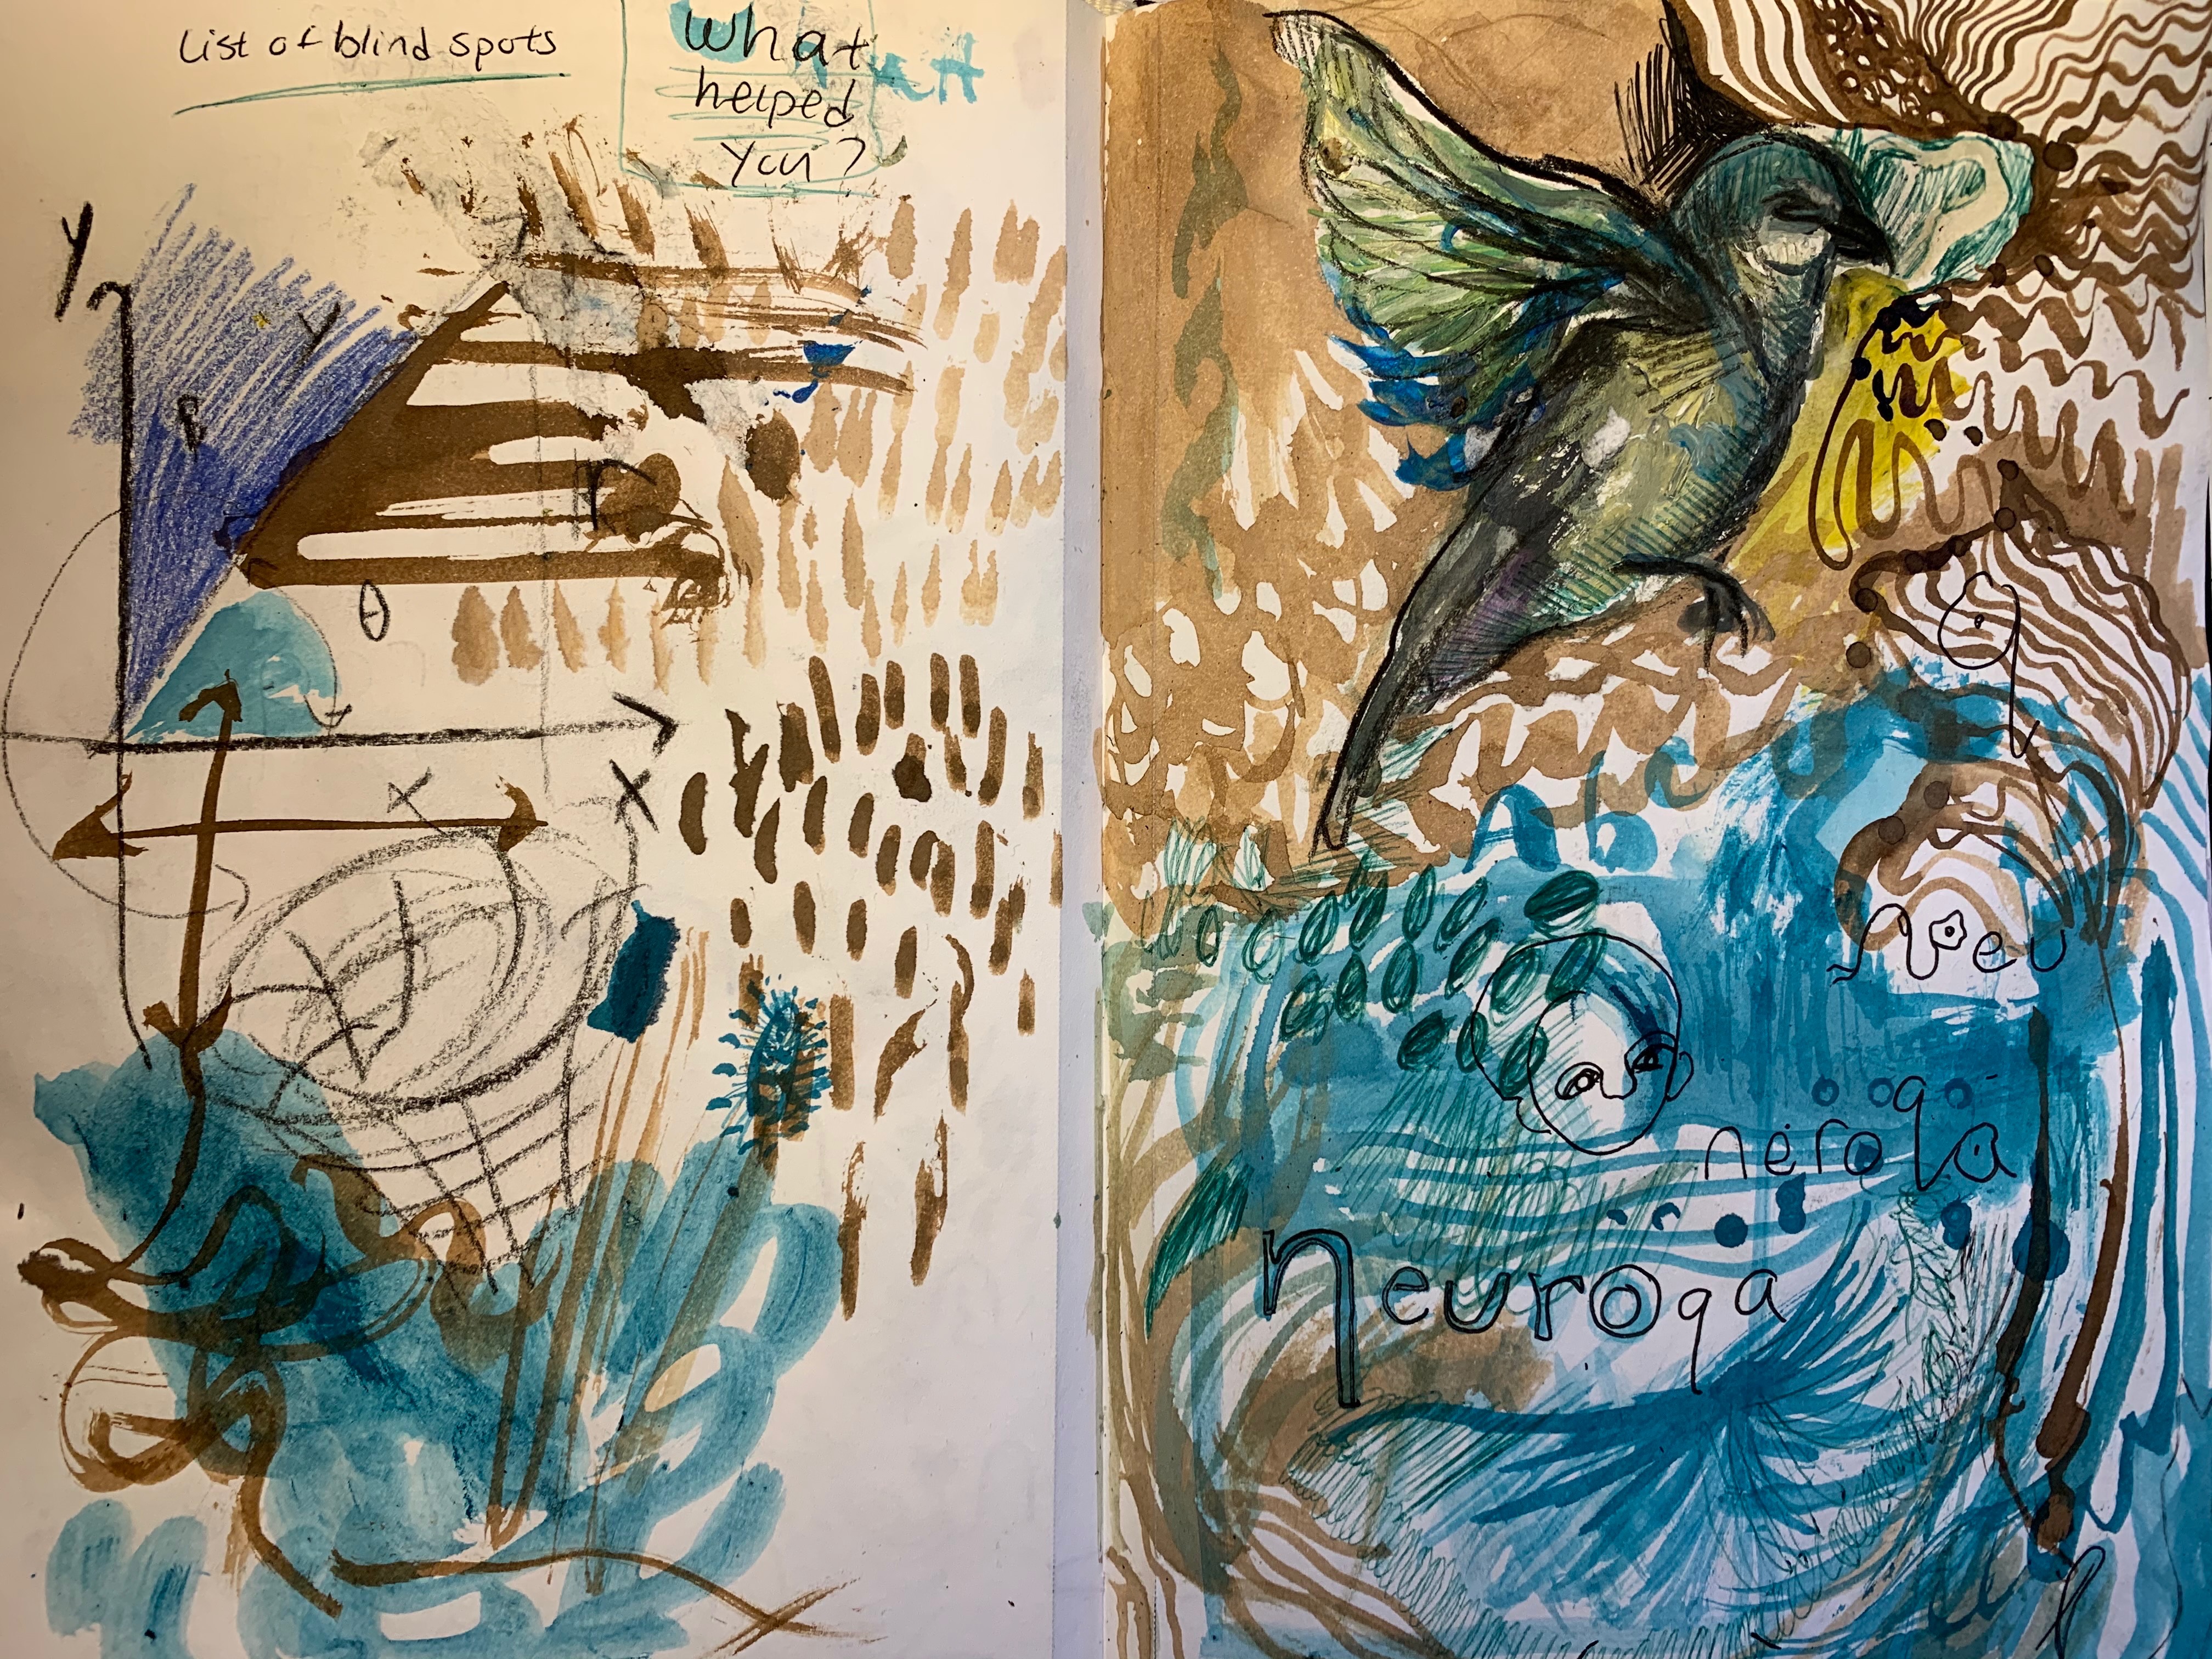 List of blind spots
What
helped
you?
y
y
R
r
θ
x
x
q
A b c
neu
q
neroqa
neuroqa